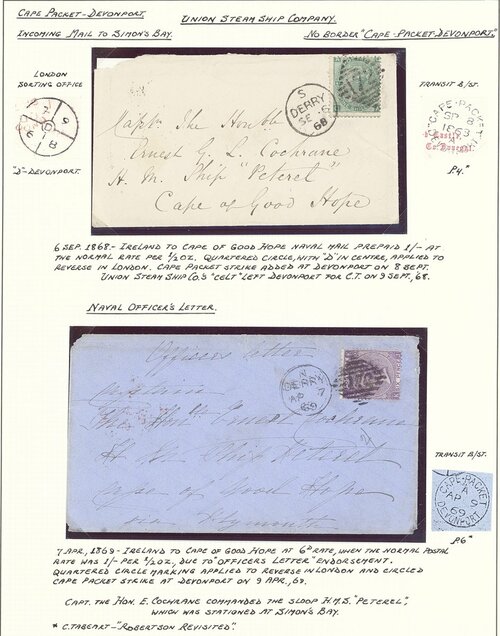 CAPE PACKET-DEVONPORT.
UNION STEAM SHIP COMPANY.
INCOMING MAIL TO SIMON'S BAY.
NO BORDER "CAPE-PACKET-DEVONPORT,"
LONDON
SORTING OFFICE
TRANSIT B/ST.
S
DERRY
SE 6
68
CAPE-PACKET
SP 8
1868
Co. Donegal.
Captn The Honble
Ernest G. L. Cochrane
H. M. Ship "Peteret"
Cape of Good Hope
"D"-DEVONPORT.
P4."
6 SEP. 1868.- IRELAND TO CAPE OF GOOD HOPE NAVAL MAIL PREPAID 1/- AT
THE NORMAL RATE PER ½OZ. QUARTERED CIRCLE, WITH "D" IN CENTRE, APPLIED TO
REVERSE IN LONDON. CAPE PACKET STRIKE ADDED AT DEVONPORT ON 8 SEPT.
UNION STEAM SHIP CO'S "CELT" LEFT DEVONPORT FOR C.T. ON 9 SEPT., 68.
NAVAL OFFICER'S LETTER.
Officers letter
AP 7
69
Captain
The Honble Ernest Cochrane
H M Ship Peteret
Cape of Good Hope
via Plymouth
TRANSIT B/ST.
CAPE-PACKET
A
AP 9
69
DEVONPORT
P6"
7 APR, 1869- IRELAND TO CAPE OF GOOD HOPE AT 6D RATE, WHEN THE NORMAL POSTAL
RATE WAS 1/- PER ½OZ, DUE TO "OFFICERS LETTER" ENDORSEMENT.
QUARTERED CIRCLE MARKING APPLIED TO REVERSE IN LONDON AND CIRCLED
CAPE PACKET STRIKE AT DEVONPORT ON 9 APR., 69.
CAPT. THE HON. E. COCHRANE COMMANDED THE SLOOP H.M.S. "PETEREL",
WHICH WAS STATIONED AT SIMON'S BAY.
* C. TABEART - "ROBERTSON REVISITED".